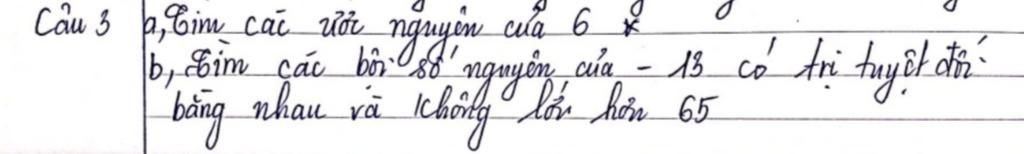 Câu 3 a, Tìm các ước nguyên của 6
b, Tìm các bội số nguyên của - 13 có trị tuyệt đối
bằng nhau và không lớn hơn 65